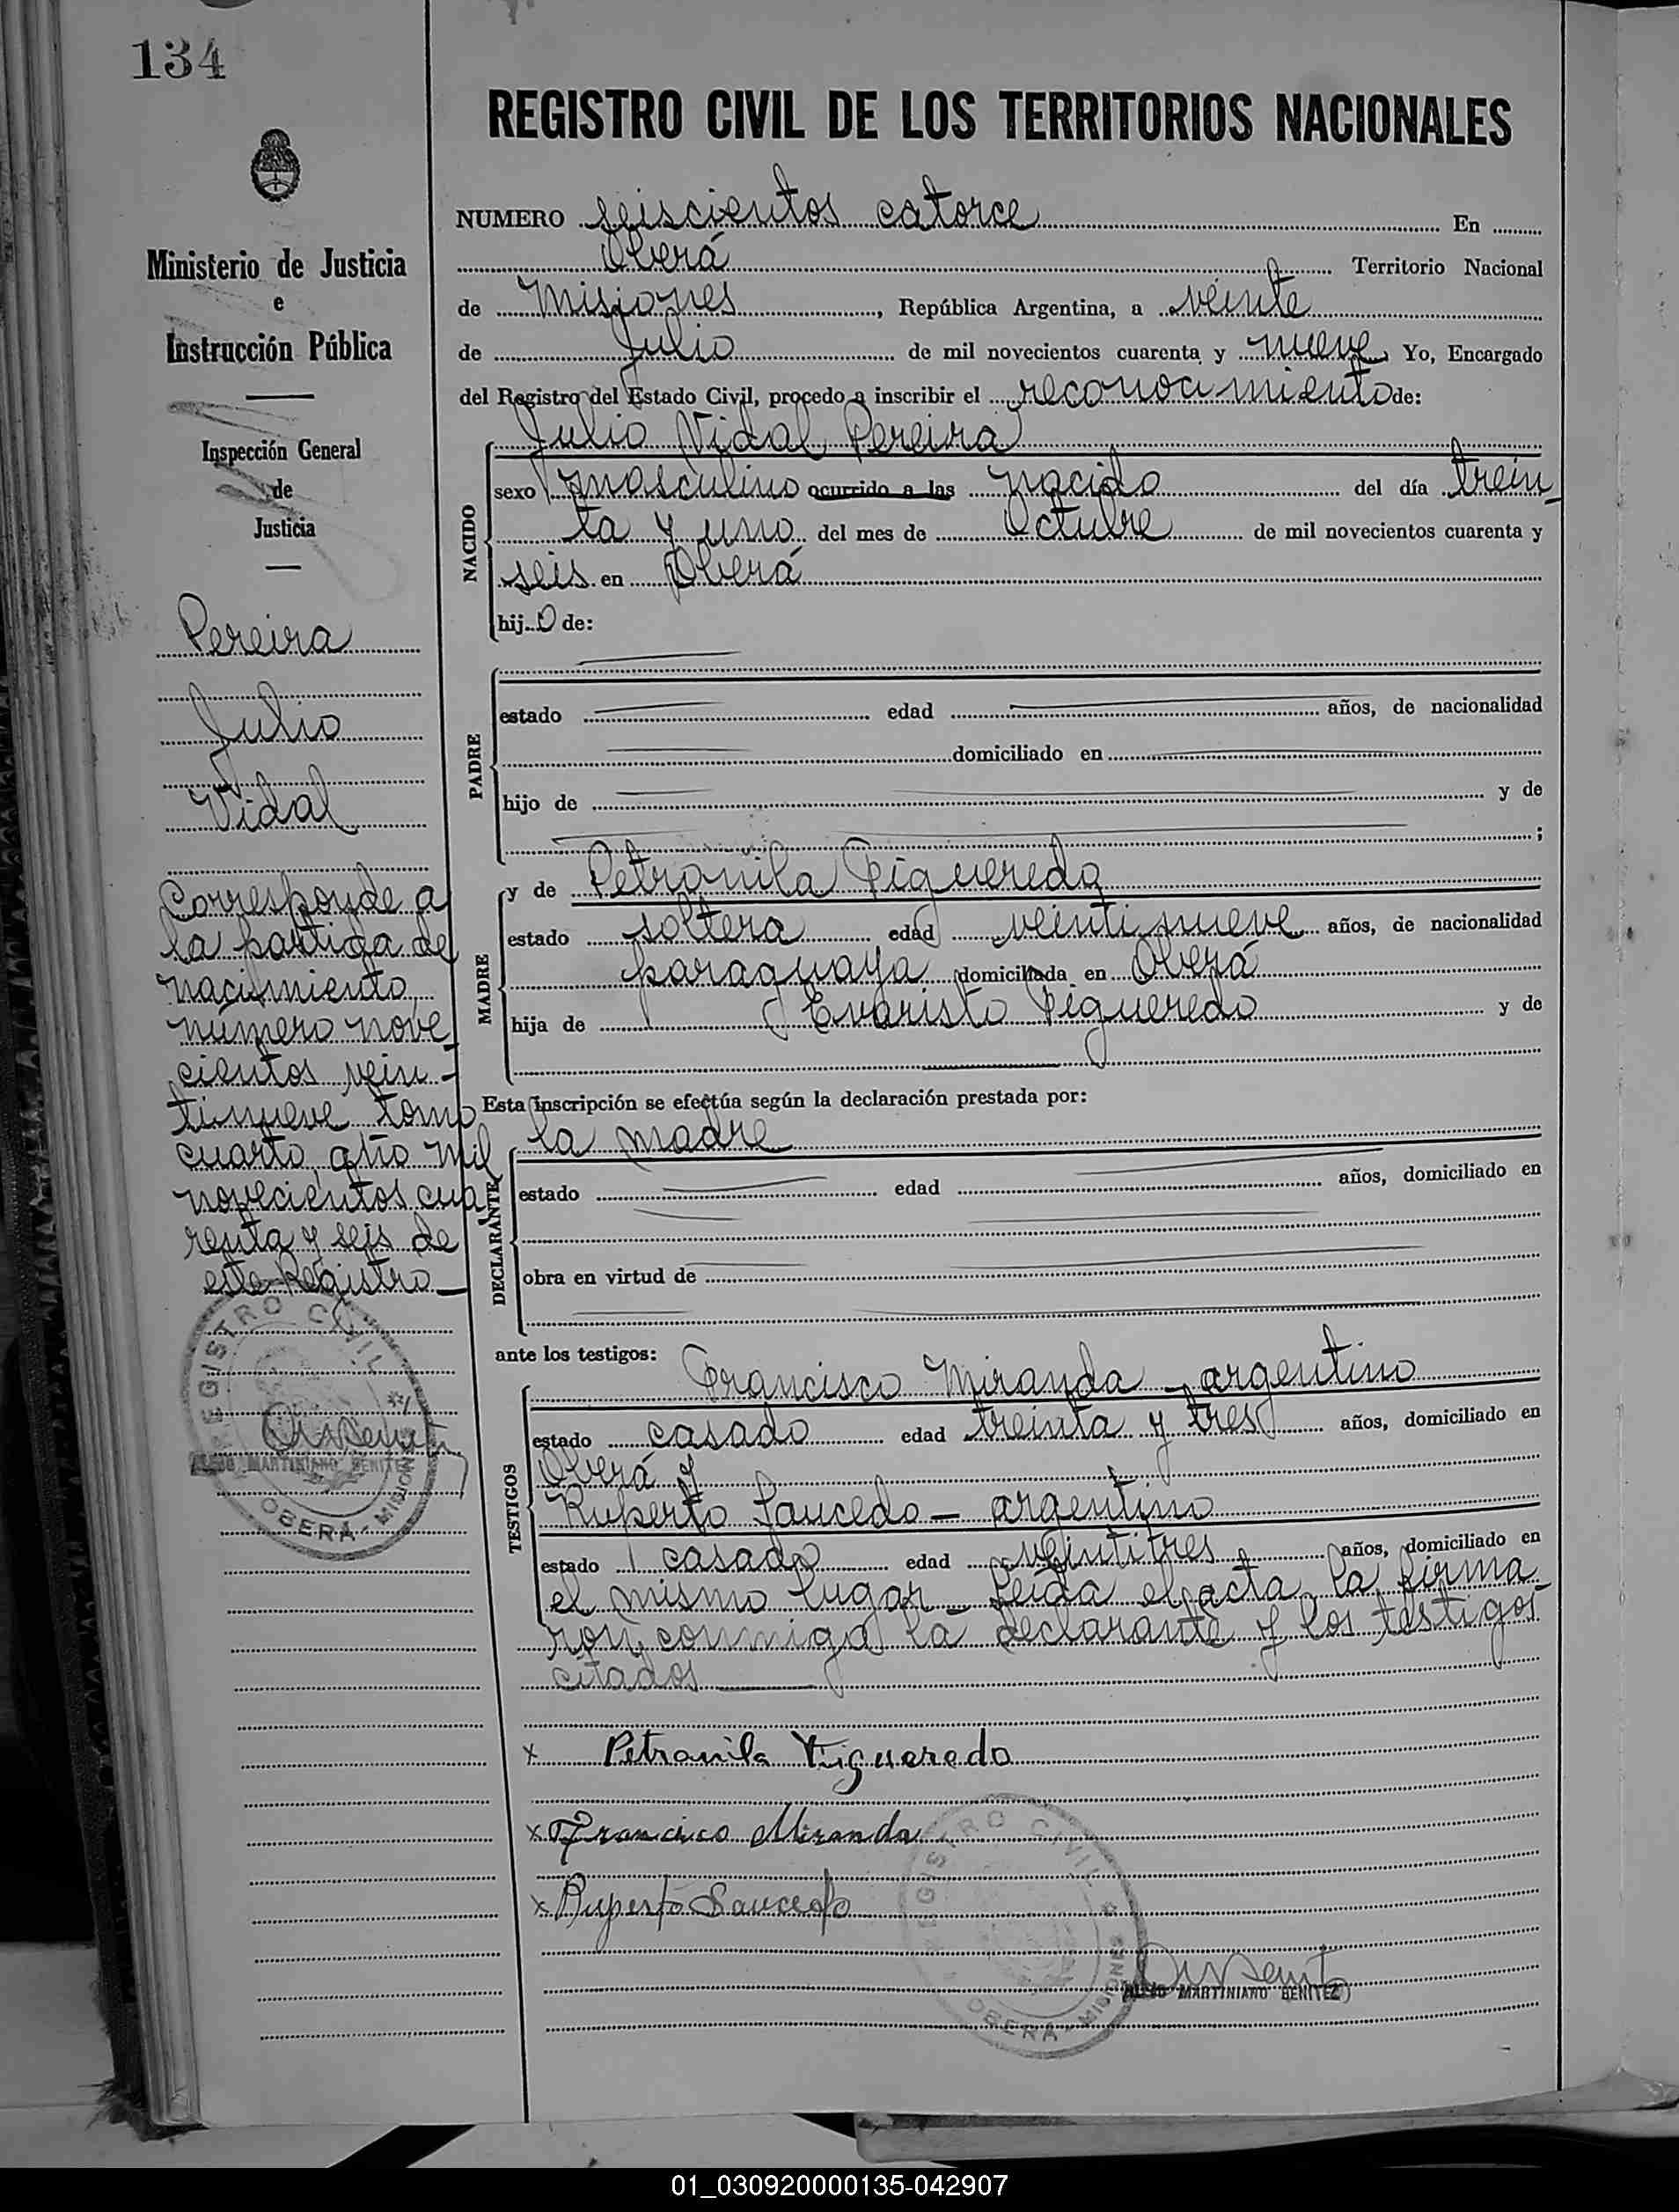 134
REGISTRO CIVIL DE LOS TERRITORIOS NACIONALES
Ministerio de Justicia
e
Instrucción Pública
Inspección General
de
Justicia
Pereira
Julio
Vidal
Corresponde a
la partida de
nacimiento
número nove
cientos vein-
tinueve tomo
cuarto, año mil
novecientos cua
renta y seis de
este Registro
REGISTRO CIVIL
OBERÁ - MISIONES
MARTINIANO BENITEZ
NUMERO seiscientos catorce En
Oberá Territorio Nacional
de Misiones, República Argentina, a veinte
de Julio de mil novecientos cuarenta y nueve Yo, Encargado
del Registro del Estado Civil, procedo a inscribir el reconocimiento de:
Julio Vidal Pereira
NACIDO
sexo masculino ocurrido a las nacido del día trein-
ta y uno del mes de Octubre de mil novecientos cuarenta y
seis en Oberá
hijo de:
PADRE
estado edad años, de nacionalidad
domiciliado en
hijo de y de
;
MADRE
y de Petronila Figueredo
estado soltera edad veintinueve años, de nacionalidad
paraguaya domiciliada en Oberá
hija de Evaristo Figueredo y de
Esta inscripción se efectúa según la declaración prestada por:
la madre
DECLARANTE
estado edad años, domiciliado en
obra en virtud de
ante los testigos:
TESTIGOS
Francisco Miranda - argentino
estado casado edad treinta y tres años, domiciliado en
Oberá y
Ruperto Saucedo - argentino
estado casado edad veintitres años, domiciliado en
el mismo lugar - Leída el acta, la firma-
ron conmigo la declarante y los testigos
citados
x Petronila Figueredo
x Francisco Miranda
x Ruperto Saucedo
REGISTRO CIVIL
OBERÁ - MISIONES
MARTINIANO BENITEZ
01_030920000135-042907